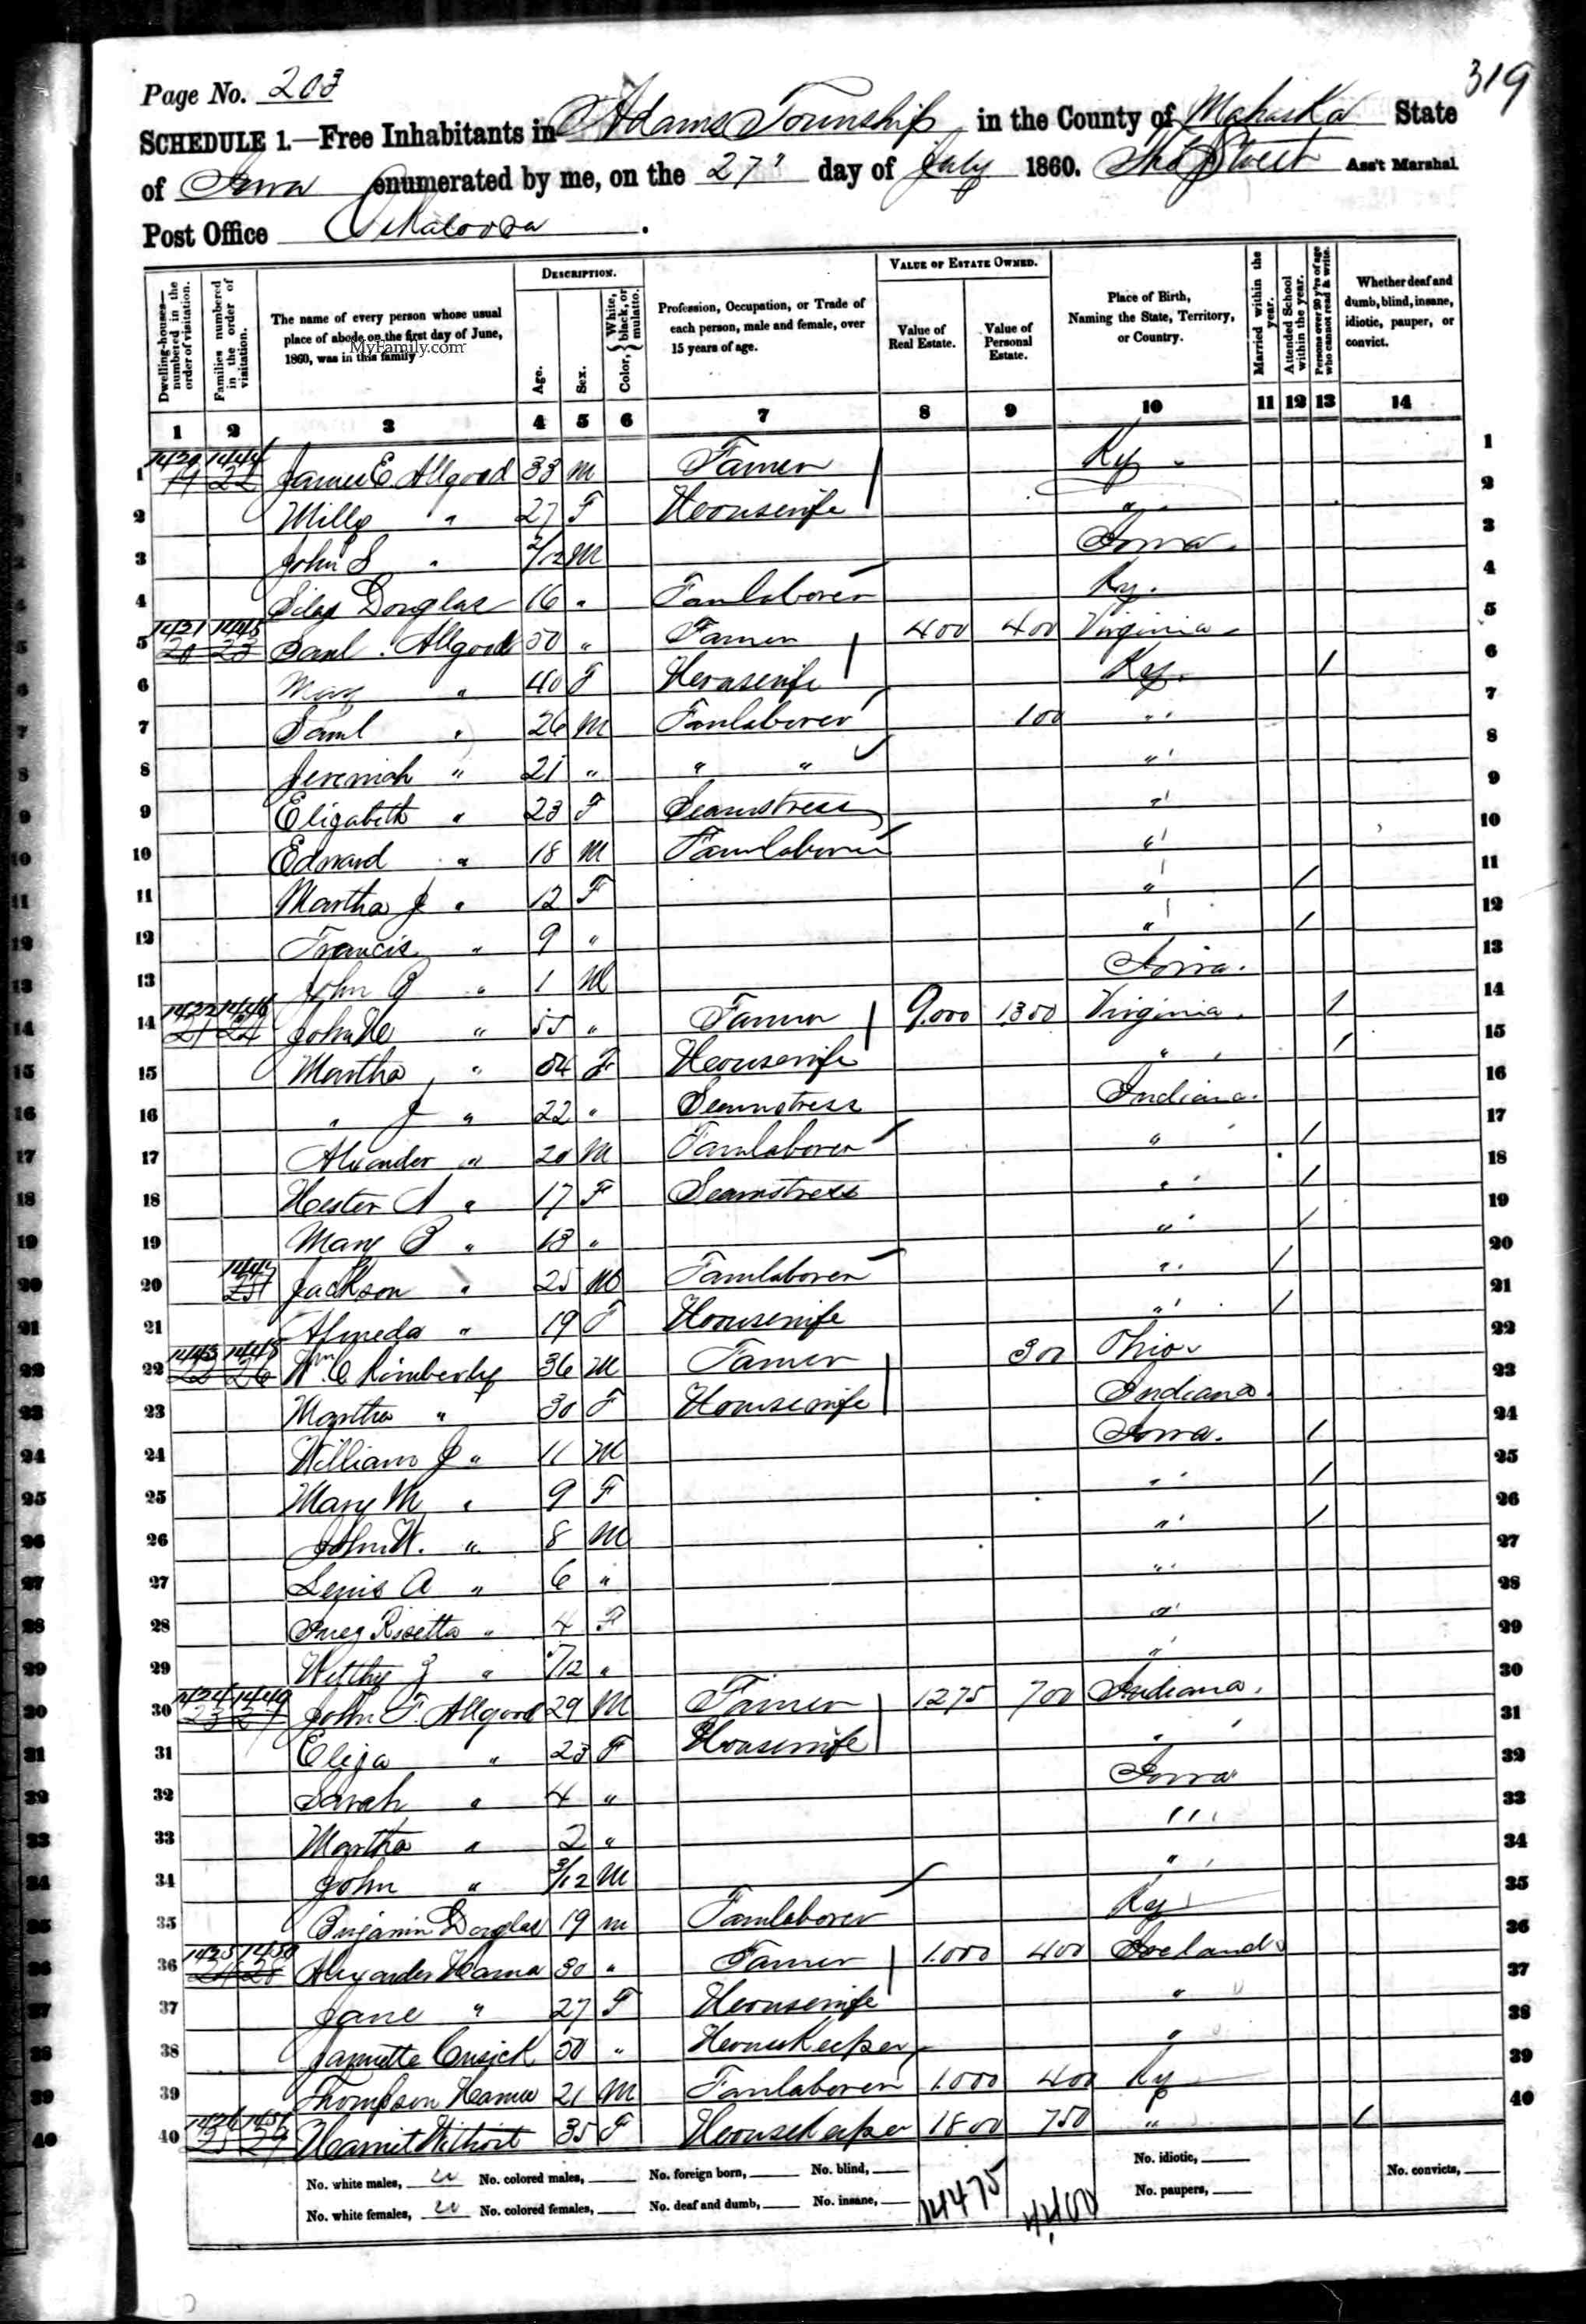 319
Page No. 203
SCHEDULE 1.—Free Inhabitants in Adams Township in the County of Mahaska State
of Iowa enumerated by me, on the 27" day of July 1860. Thos J Street Ass't Marshal
Post Office Oskaloosa.
DESCRIPTION. VALUE OF ESTATE OWNED.
Dwelling-houses— numbered in the order of visitation. Families numbered in the order of visitation. The name of every person whose usual place of abode on the first day of June, 1860, was in this family Age. Sex. Color, { White, black, or mulatto. Profession, Occupation, or Trade of each person, male and female, over 15 years of age. Value of Real Estate. Value of Personal Estate. Place of Birth, Naming the State, Territory, or Country. Married within the year. Attended School within the year. Persons over 20 y'rs of age who cannot read & write. Whether deaf and dumb, blind, insane, idiotic, pauper, or convict.
MyFamily.com
1 2 3 4 5 6 7 8 9 10 11 12 13 14
1 1420 1444 19 22 James E Allgood 33 M Farmer Ky 1
2 Milly " 27 F Housewife " 2
3 John S " 2/12 M Iowa 3
4 Silas Douglas 16 " Farmlaborer Ky. 4
5 1421 1445 20 23 Saml. Allgood 50 " Farmer 400 400 Virginia 5
6 Mary " 40 F Housewife Ky. / 6
7 Saml " 26 M Farmlaborer 100 " 7
8 Jeremiah " 21 " " " " 8
9 Elizabeth " 23 F Seamstress " 9
10 Edward " 18 M Farmlaborer " 10
11 Martha J " 12 F " / 11
12 Francis " 9 " " / 12
13 John " 1 M Iowa. 13
14 1422 1446 21 24 John " 55 " Farmer 9,000 1300 Virginia. / 14
15 Martha " 54 F Housewife " / 15
16 " J " 22 " Seamstress Indiana. 16
17 Alexander " 20 M Farmlaborer " / 17
18 Hester A " 17 F Seamstress " / 18
19 Mary " 13 " " / 19
20 1447 25 Jackson " 25 M Farmlaborer " / 20
21 Almeda " 19 F Housewife " / 21
22 1448 22 26 Wm C Kimberly 36 M Farmer 300 Ohio 22
23 Martha " 30 F Housewife Indiana. 23
24 William J " 11 M Iowa. / 24
25 Mary M " 9 F " / 25
26 John W. " 8 M " / 26
27 Lewis A " 6 " " 27
28 Rosetta " 4 F " 28
29 " /12 " " 29
30 1424 1449 23 27 John F. Allgood 29 M Farmer 1275 700 Indiana. 30
31 Eliza " 23 F Housewife " 31
32 Sarah " 4 " Iowa 32
33 Martha " 2 " " 33
34 John " 3/12 M " 34
35 Benjamin Douglas 19 m Farmlaborer Ky 35
36 1425 1450 24 28 Alexander Hanna 30 " Farmer 1.000 400 Ireland 36
37 Jane " 27 F Housewife " 37
38 Cusick 50 " Housekeeper " 38
39 Thompson 21 M Farmlaborer 1.000 400 Ky 39
40 1426 1451 25 29 Harriet 35 F Housekeeper 1800 750 " / 40
No. white males, 20 No. colored males, No. foreign born, No. blind, No. idiotic, No. convicts,
No. white females, 20 No. colored females, No. deaf and dumb, No. insane, 14475 4,400 No. paupers,